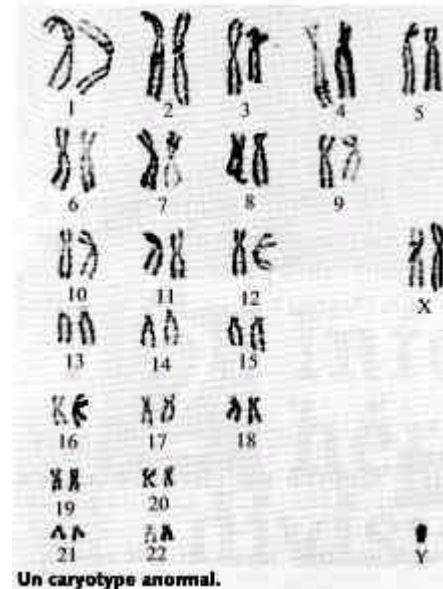 1 2 3 4 5
6 7 8 9
10 11 12 X
13 14 15
16 17 18
19 20
21 22 Y
Un caryotype anormal.